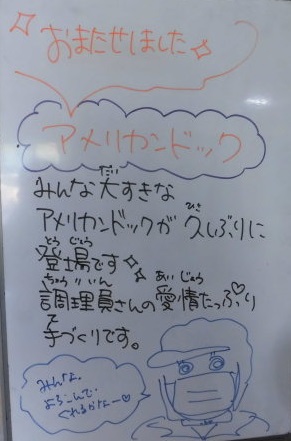 おまたせしました
アメリカンドック
みんな大すきな
アメリカンドックが久しぶりに
登場です
調理員さんの愛情たっぷり♡
手づくりです。
みんな。
よろこんで
くれるかなー♡